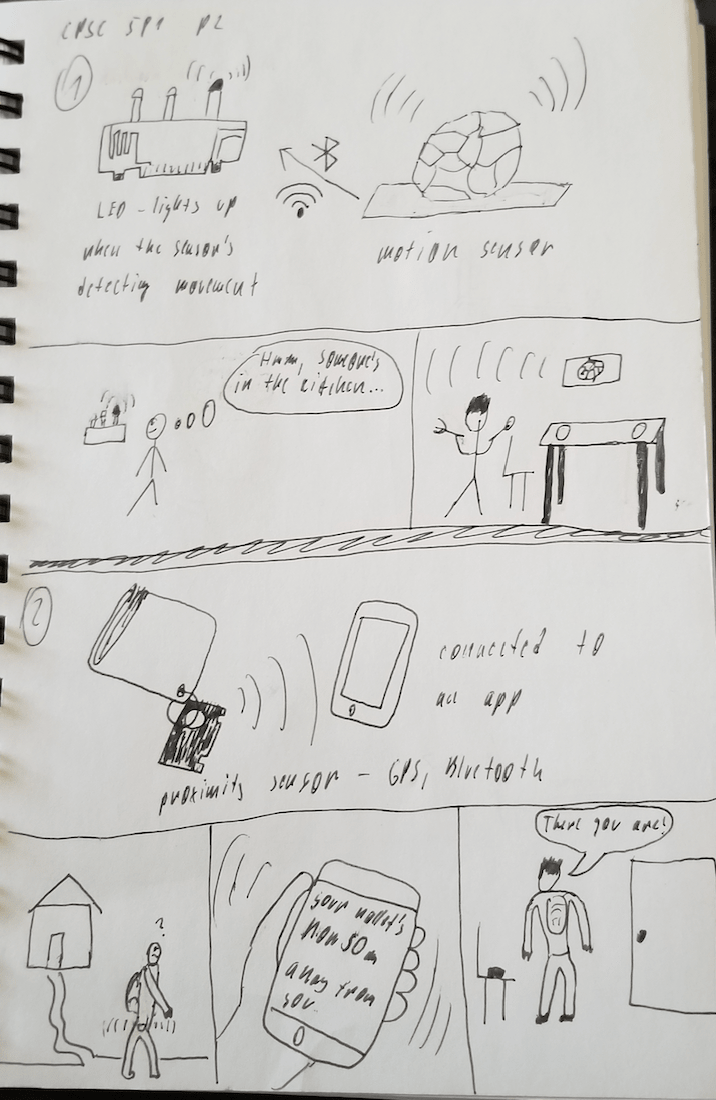 CPSC 581 P2
1
LED - lights up
when the sensor's
detecting movement
motion sensor
Hmm, someone's
in the kitchen...
2
connected to
an app
proximity sensor - GPS, Bluetooth
?
your wallet's
now 50 m
away from
you.
There you are!